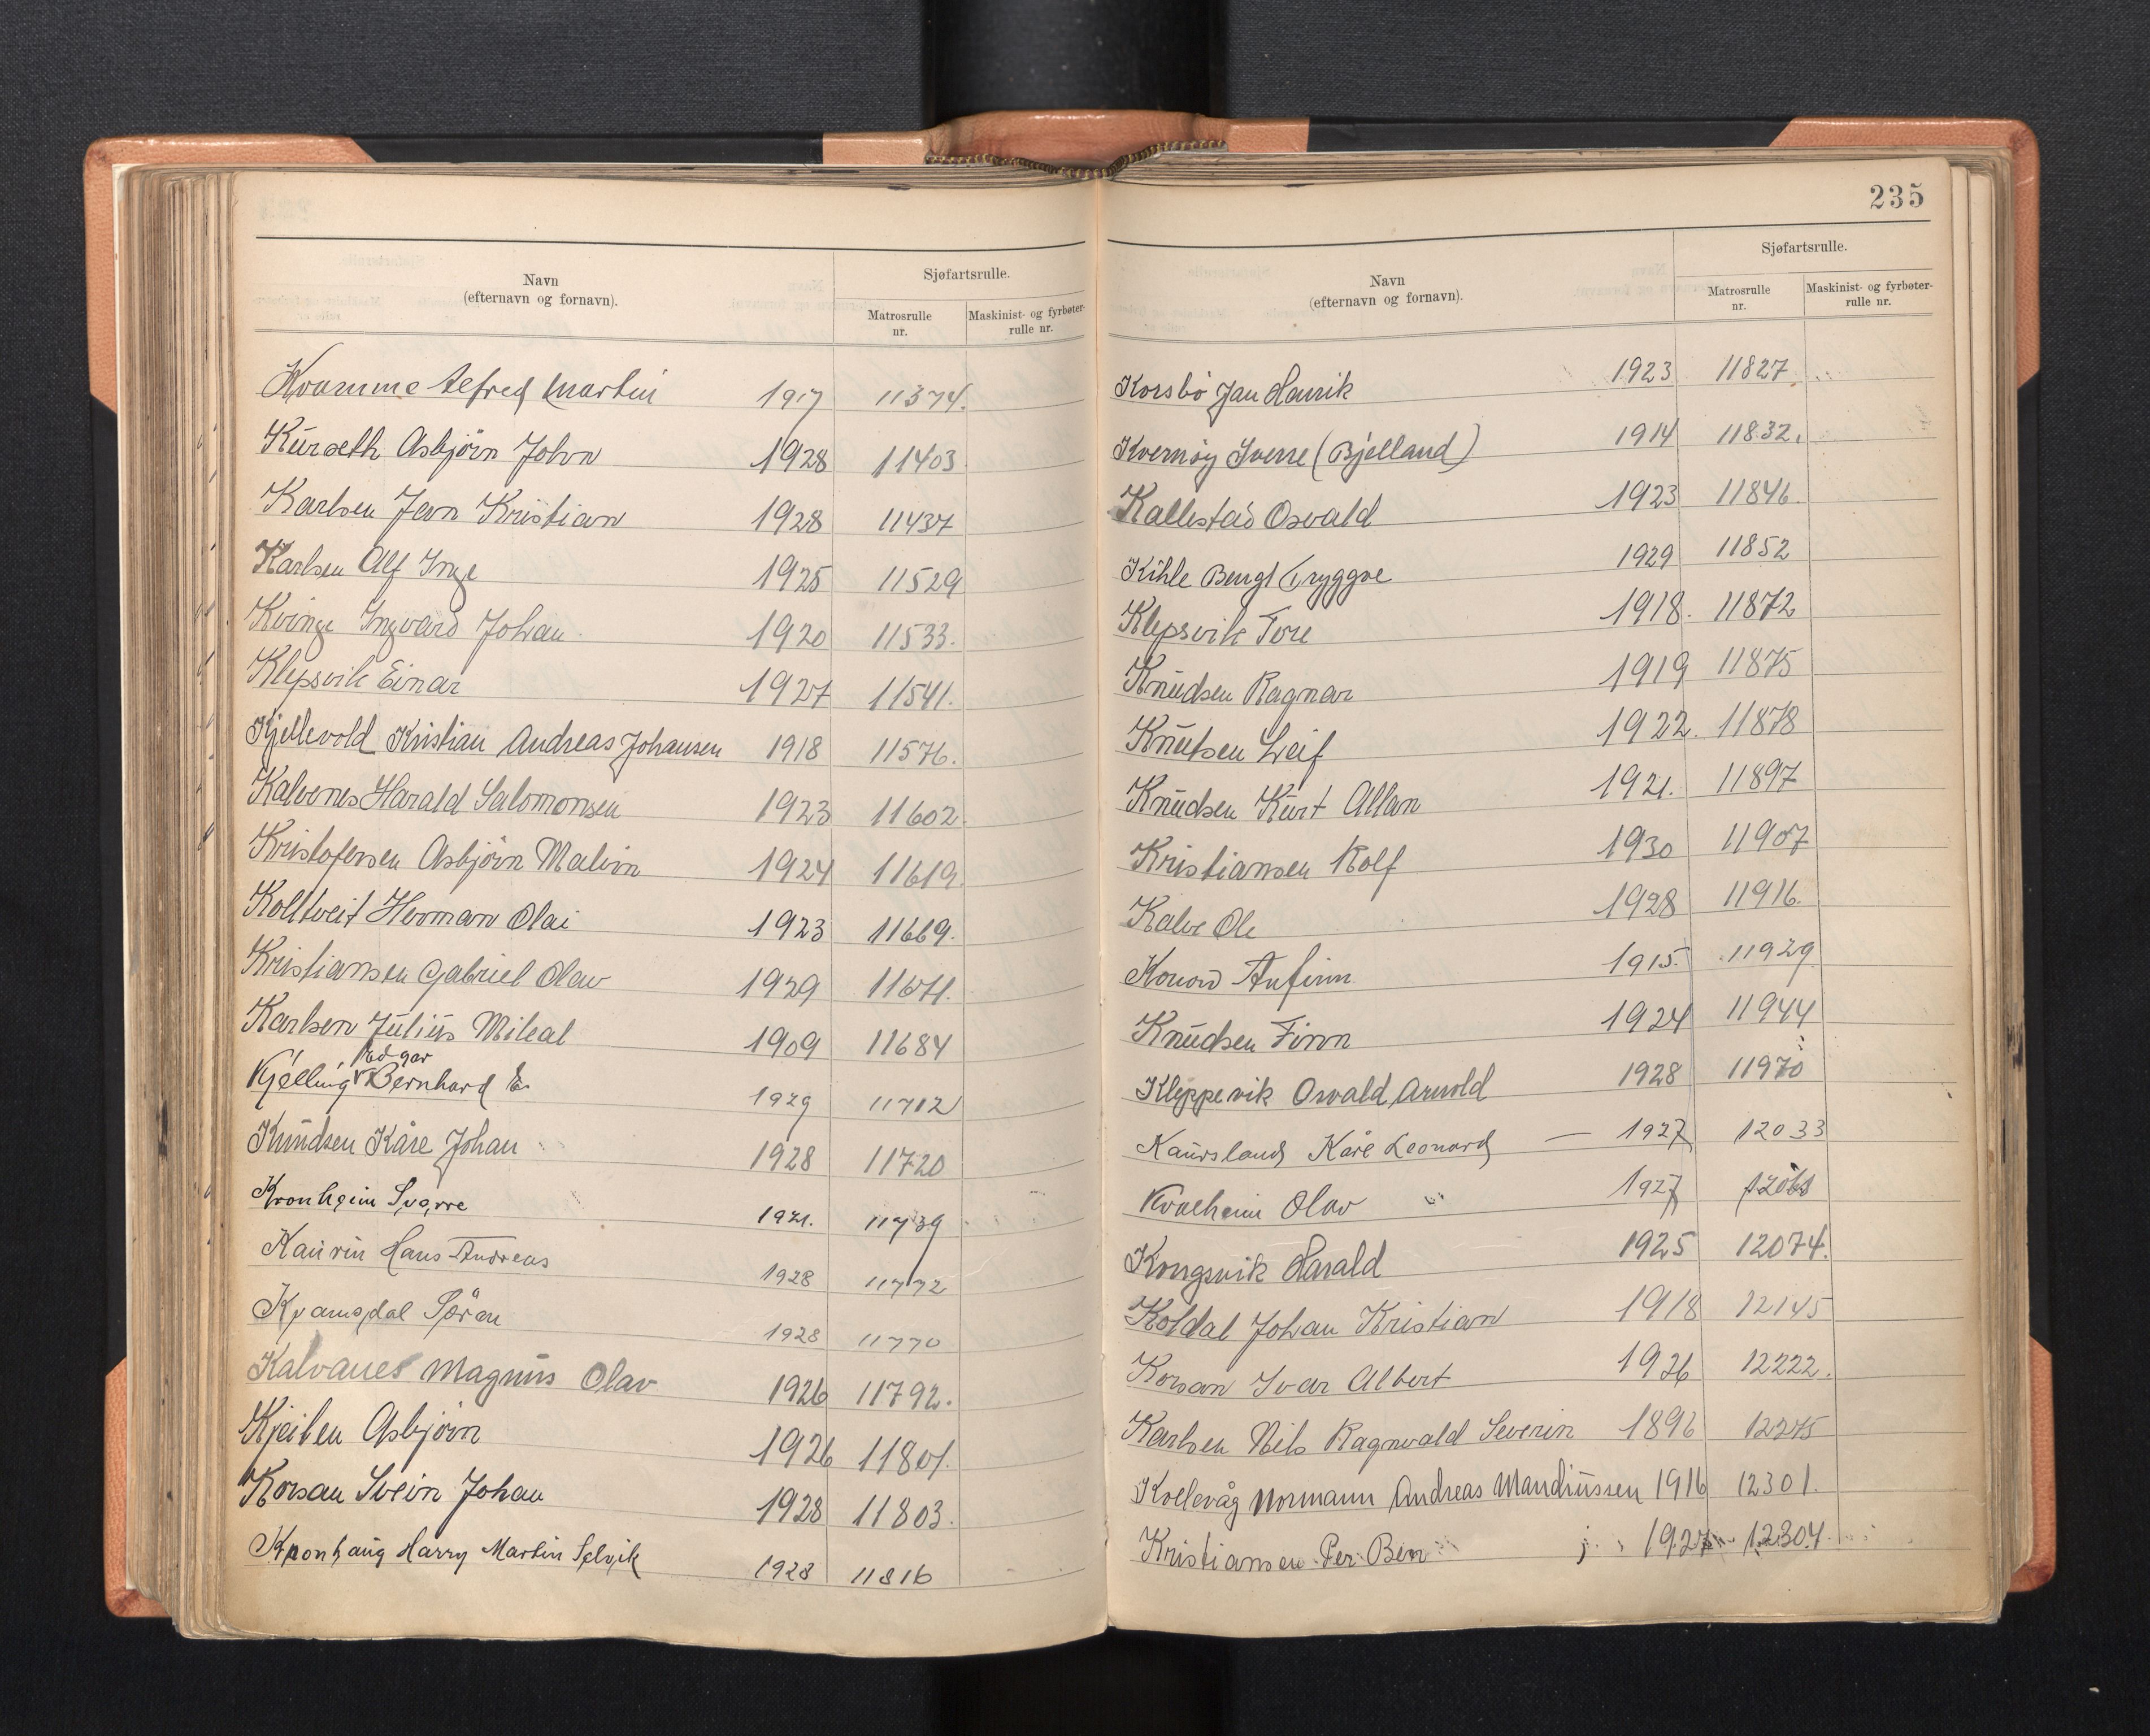 Navn
(efternavn og fornavn).
Sjøfartsrulle.
Matrosrulle
nr.
Maskinist- og fyrbøter-
rulle nr.
Kvamme Alfred Martin 1917 11374.
Kürseth Asbjörn John 1928 11403
Karlsen Jan Kristian 1928 11437
Karlsen Alf Inge 1925 11529
Kvinge Ingvard Johan 1920 11533.
Klepsvik Einar 1927 11541.
Kjellevold Kristian Andreas Johansen 1918 11576.
Kalvenes Harald Salomonsen 1923 11602.
Kristofersen Asbjörn Malvin 1924 11619.
Koltveit Herman Olai 1923 11669.
Kristiansen Gabriel Olav 1929 11671.
Karlsen Jülius Mikal 1909 11684
Edgar
Kjelling Bernhard E. 1929 11712
Knüdsen Kåre Johan 1928 11720
Kronheim Sverre 1921. 11739
Kaürin Hans Andreas 1928 11772
Kvamsdal Sören 1928 11770
Kalvanes Magnüs Olav 1926 11792.
Kjeilen Asbjörn 1926 11801.
Korsan Svein Johan 1928 11803.
Kronhaüg Harry Martin Selvik 1928 11816
235
Navn
(efternavn og fornavn).
Sjøfartsrulle.
Matrosrulle
nr.
Maskinist- og fyrbøter-
rulle nr.
Korsbö Jan Henrik 1923 11827.
Kvernöy Sverre (Bjelland) 1914 11832.
Kallestad Osvald 1923 11846.
Kihle Bengt Tryggve 1929 11852
Klepsvik Tore 1918. 11872
Knüdsen Ragnar 1919 11875
Knütsen Leif 1922. 11878
Knüdsen Kürt Allan 1921. 11897
Kristiansen Rolf 1930 11907
Kalve Ole 1928 11916.
Konow Anfinn 1915. 11929
Knüdsen Finn 1924 11944
Kleppevik Osvald Arnold 1928 11970
Kaürsland Kåre Leonard — 1927 12033
Kvalheim Olav 1927
Kongsvik Harald 1925 12074.
Koldal Johan Kristian 1918 12145
Korsan Ivar Albert 1926 12222.
Karlsen Nils Ragnvald Severin 1896 12275
Kvelevåg Normann Andreas Mandiüssen 1916 12301.
Kristiansen Per Ben 1927 12304.